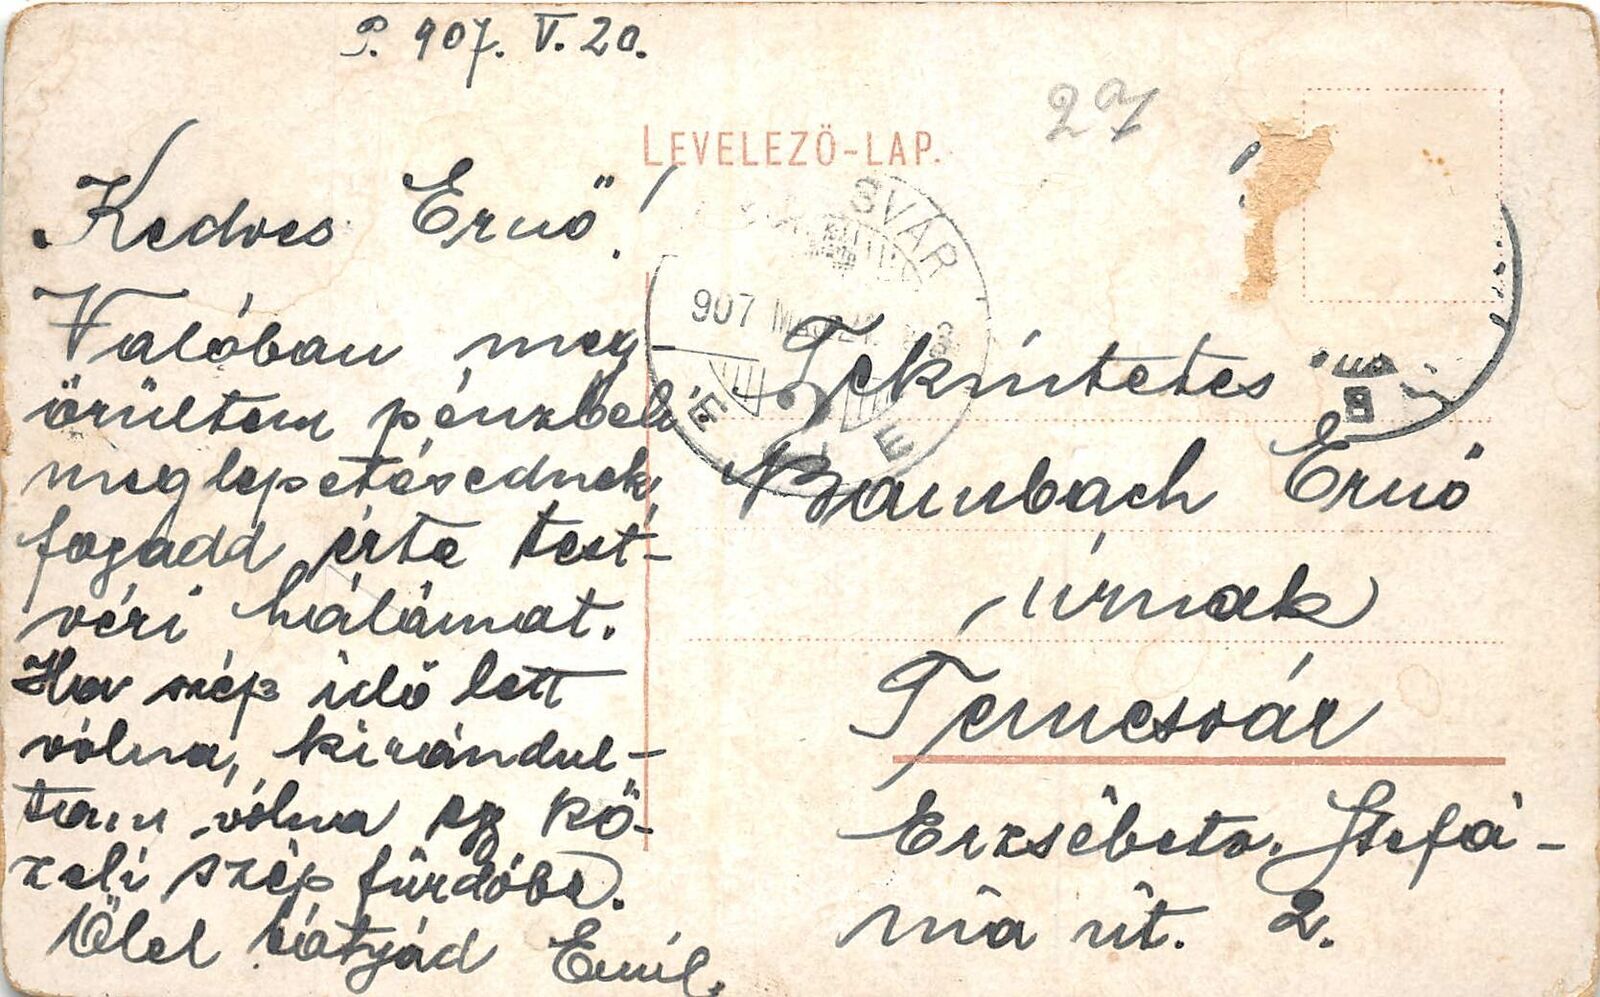 P. 907. V. 20.
27
LEVELEZŐ-LAP.
Kedves Ernő!
Valóban meg-
örültem pénzbeli
meglepetésednek,
fogadd érte test-
véri hálámat.
Ha szép idő lett
vólna, kirándul-
tam vólna egy kö-
zeli szép fürdőbe.
Ölel bátyád Emil.
SVÁR
907 MÁJ 21.
Tekintetes
Baumbach Ernő
úrnak
Temesvár
Erzsébetv. Stefá-
nia út. 2.